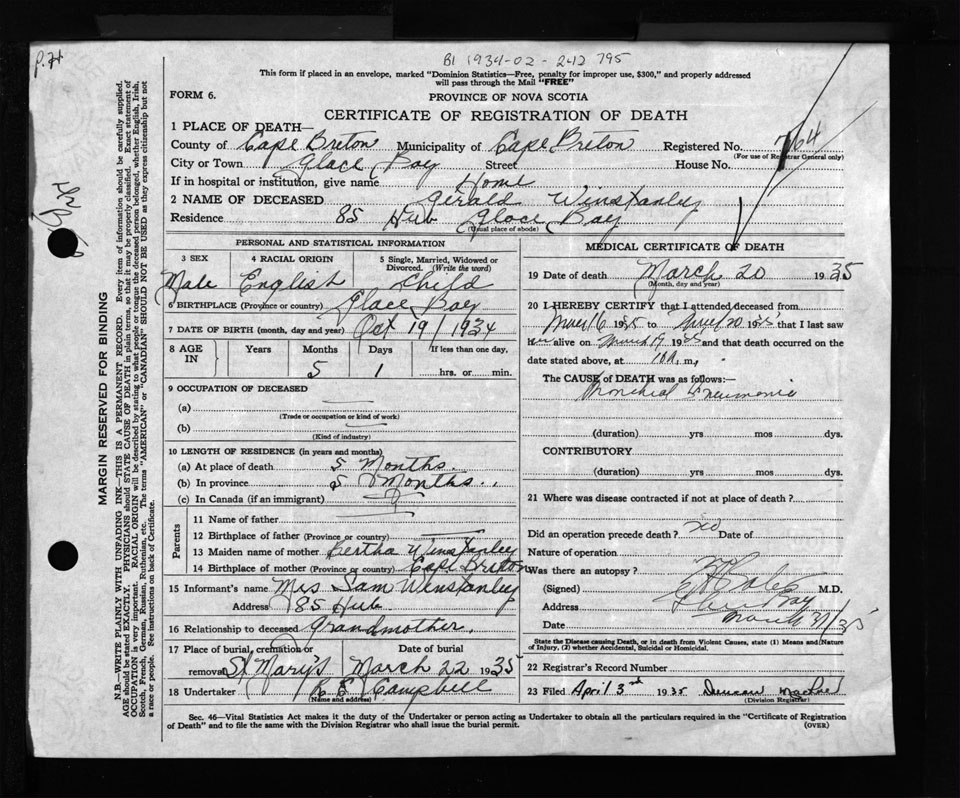 P. 71
B1 1934-02-242795
This form if placed in an envelope, marked "Dominion Statistics—Free, penalty for improper use, $300," and properly addressed
will pass through the Mail "FREE"
FORM 6.
PROVINCE OF NOVA SCOTIA
CERTIFICATE OF REGISTRATION OF DEATH
1 PLACE OF DEATH—
County of Cape Breton Municipality of Cape Breton Registered No. 764
(For use of Registrar General only)
City or Town Glace Bay Street House No.
If in hospital or institution, give name Home
2 NAME OF DECEASED Gerald Winstanley
Residence 85 Hub Glace Bay
(Usual place of abode)
PERSONAL AND STATISTICAL INFORMATION
3 SEX 4 RACIAL ORIGIN 5 Single, Married, Widowed or
Divorced. (Write the word)
Male English Child
6 BIRTHPLACE (Province or country) Glace Bay
7 DATE OF BIRTH (month, day and year) Oct 19/1934
8 AGE IN Years Months Days If less than one day,
5 1 hrs. or min.
9 OCCUPATION OF DECEASED
(a)
(Trade or occupation or kind of work)
(b)
(Kind of industry)
10 LENGTH OF RESIDENCE (in years and months)
(a) At place of death 5 Months.
(b) In province 5 Months.
(c) In Canada (if an immigrant)
Parents
11 Name of father
12 Birthplace of father (Province or country)
13 Maiden name of mother Bertha Winstanley
14 Birthplace of mother (Province or country) Cape Breton
15 Informant's name Mrs Sam Winstanley
Address 85 Hub
16 Relationship to deceased Grandmother.
17 Place of burial, cremation or Date of burial
removal St Mary's March 22 1935
18 Undertaker Campbell
(Name and address)
MEDICAL CERTIFICATE OF DEATH
19 Date of death March 20 1935
(Month, day and year)
20 I HEREBY CERTIFY that I attended deceased from
16 1935 to 20 1935 that I last saw
him alive on March 19 1935 and that death occurred on the
date stated above, at 10 A. m.
The CAUSE of DEATH was as follows:—
Bronchial Pneumonia
(duration) yrs mos dys.
CONTRIBUTORY
(duration) yrs mos dys.
21 Where was disease contracted if not at place of death?
Did an operation precede death? no Date of
Nature of operation
Was there an autopsy? no
(Signed) M.D.
Address Glace Bay
Date March 21/35
State the Disease causing Death, or in death from Violent Causes, state (1) Means and Nature
of Injury, (2) whether Accidental, Suicidal or Homicidal.
22 Registrar's Record Number
23 Filed April 3rd 1935 Duncan
(Division Registrar)
Sec. 46—Vital Statistics Act makes it the duty of the Undertaker or person acting as Undertaker to obtain all the particulars required in the "Certificate of Registration
of Death" and to file the same with the Division Registrar who shall issue the burial permit.
(OVER)
MARGIN RESERVED FOR BINDING
N.B.—WRITE PLAINLY WITH UNFADING INK—THIS IS A PERMANENT RECORD. Every item of information should be carefully supplied.
AGE should be stated EXACTLY. PHYSICIANS should STATE CAUSE OF DEATH in plain terms, so that it may be properly classified. Exact statement of
OCCUPATION is very important. RACIAL ORIGIN will be described by stating to what people or tongue the deceased person belonged, whether English, Irish,
Scotch, French, German, Russian, Ruthenian, etc. The terms "AMERICAN" or "CANADIAN" SHOULD NOT BE USED as they express citizenship but not
a race or people. See instructions on back of Certificate.